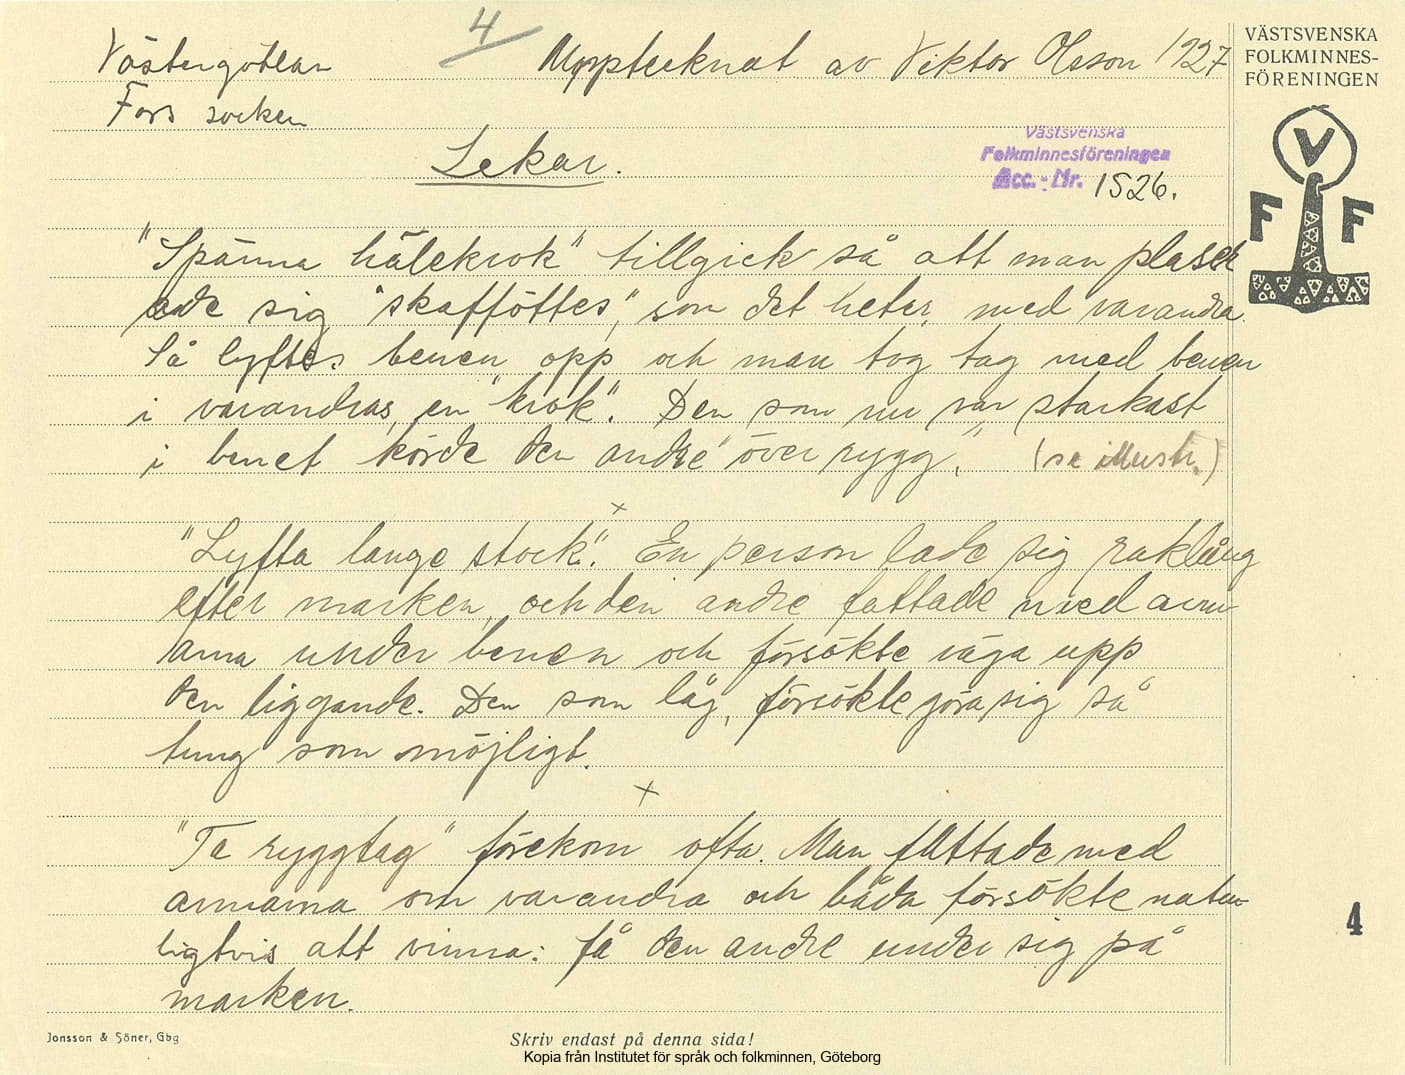 4
Västergötlan
Uppteeknat av Viktor Olsson 1927
Fors socken
Lekar.
VÄSTSVENSKA
FOLKMINNES-
FÖRENINGEN
V
F F
Västsvenska
Folkminnesföreningen
Acc.-Nr. 1526.
"Spänna hälekrok" tillgick så att man placer
ade sig "skafföttes", som det heter, med varandra.
Så lyftes benen opp och man tog tag med benen
i varandras, en "krok". Den som nu var starkast
i benet körde den andre "över rygg". (se illustr.)
x
"Lyfta lange stock". En person lade sig raklång
efter marken, och den andre fattade med arm
arna under benen och försökte väga upp
den liggande. Den som låg, försökte göra sig så
tung som möjligt.
x
"Ta ryggtag" förekom ofta. Man fattade med
armarna om varandra och båda försökte natur
ligtvis att vinna: få den andre under sig på
marken.
4
Jonsson & Söner, Gbg
Skriv endast på denna sida!
Kopia från Institutet för språk och folkminnen, Göteborg